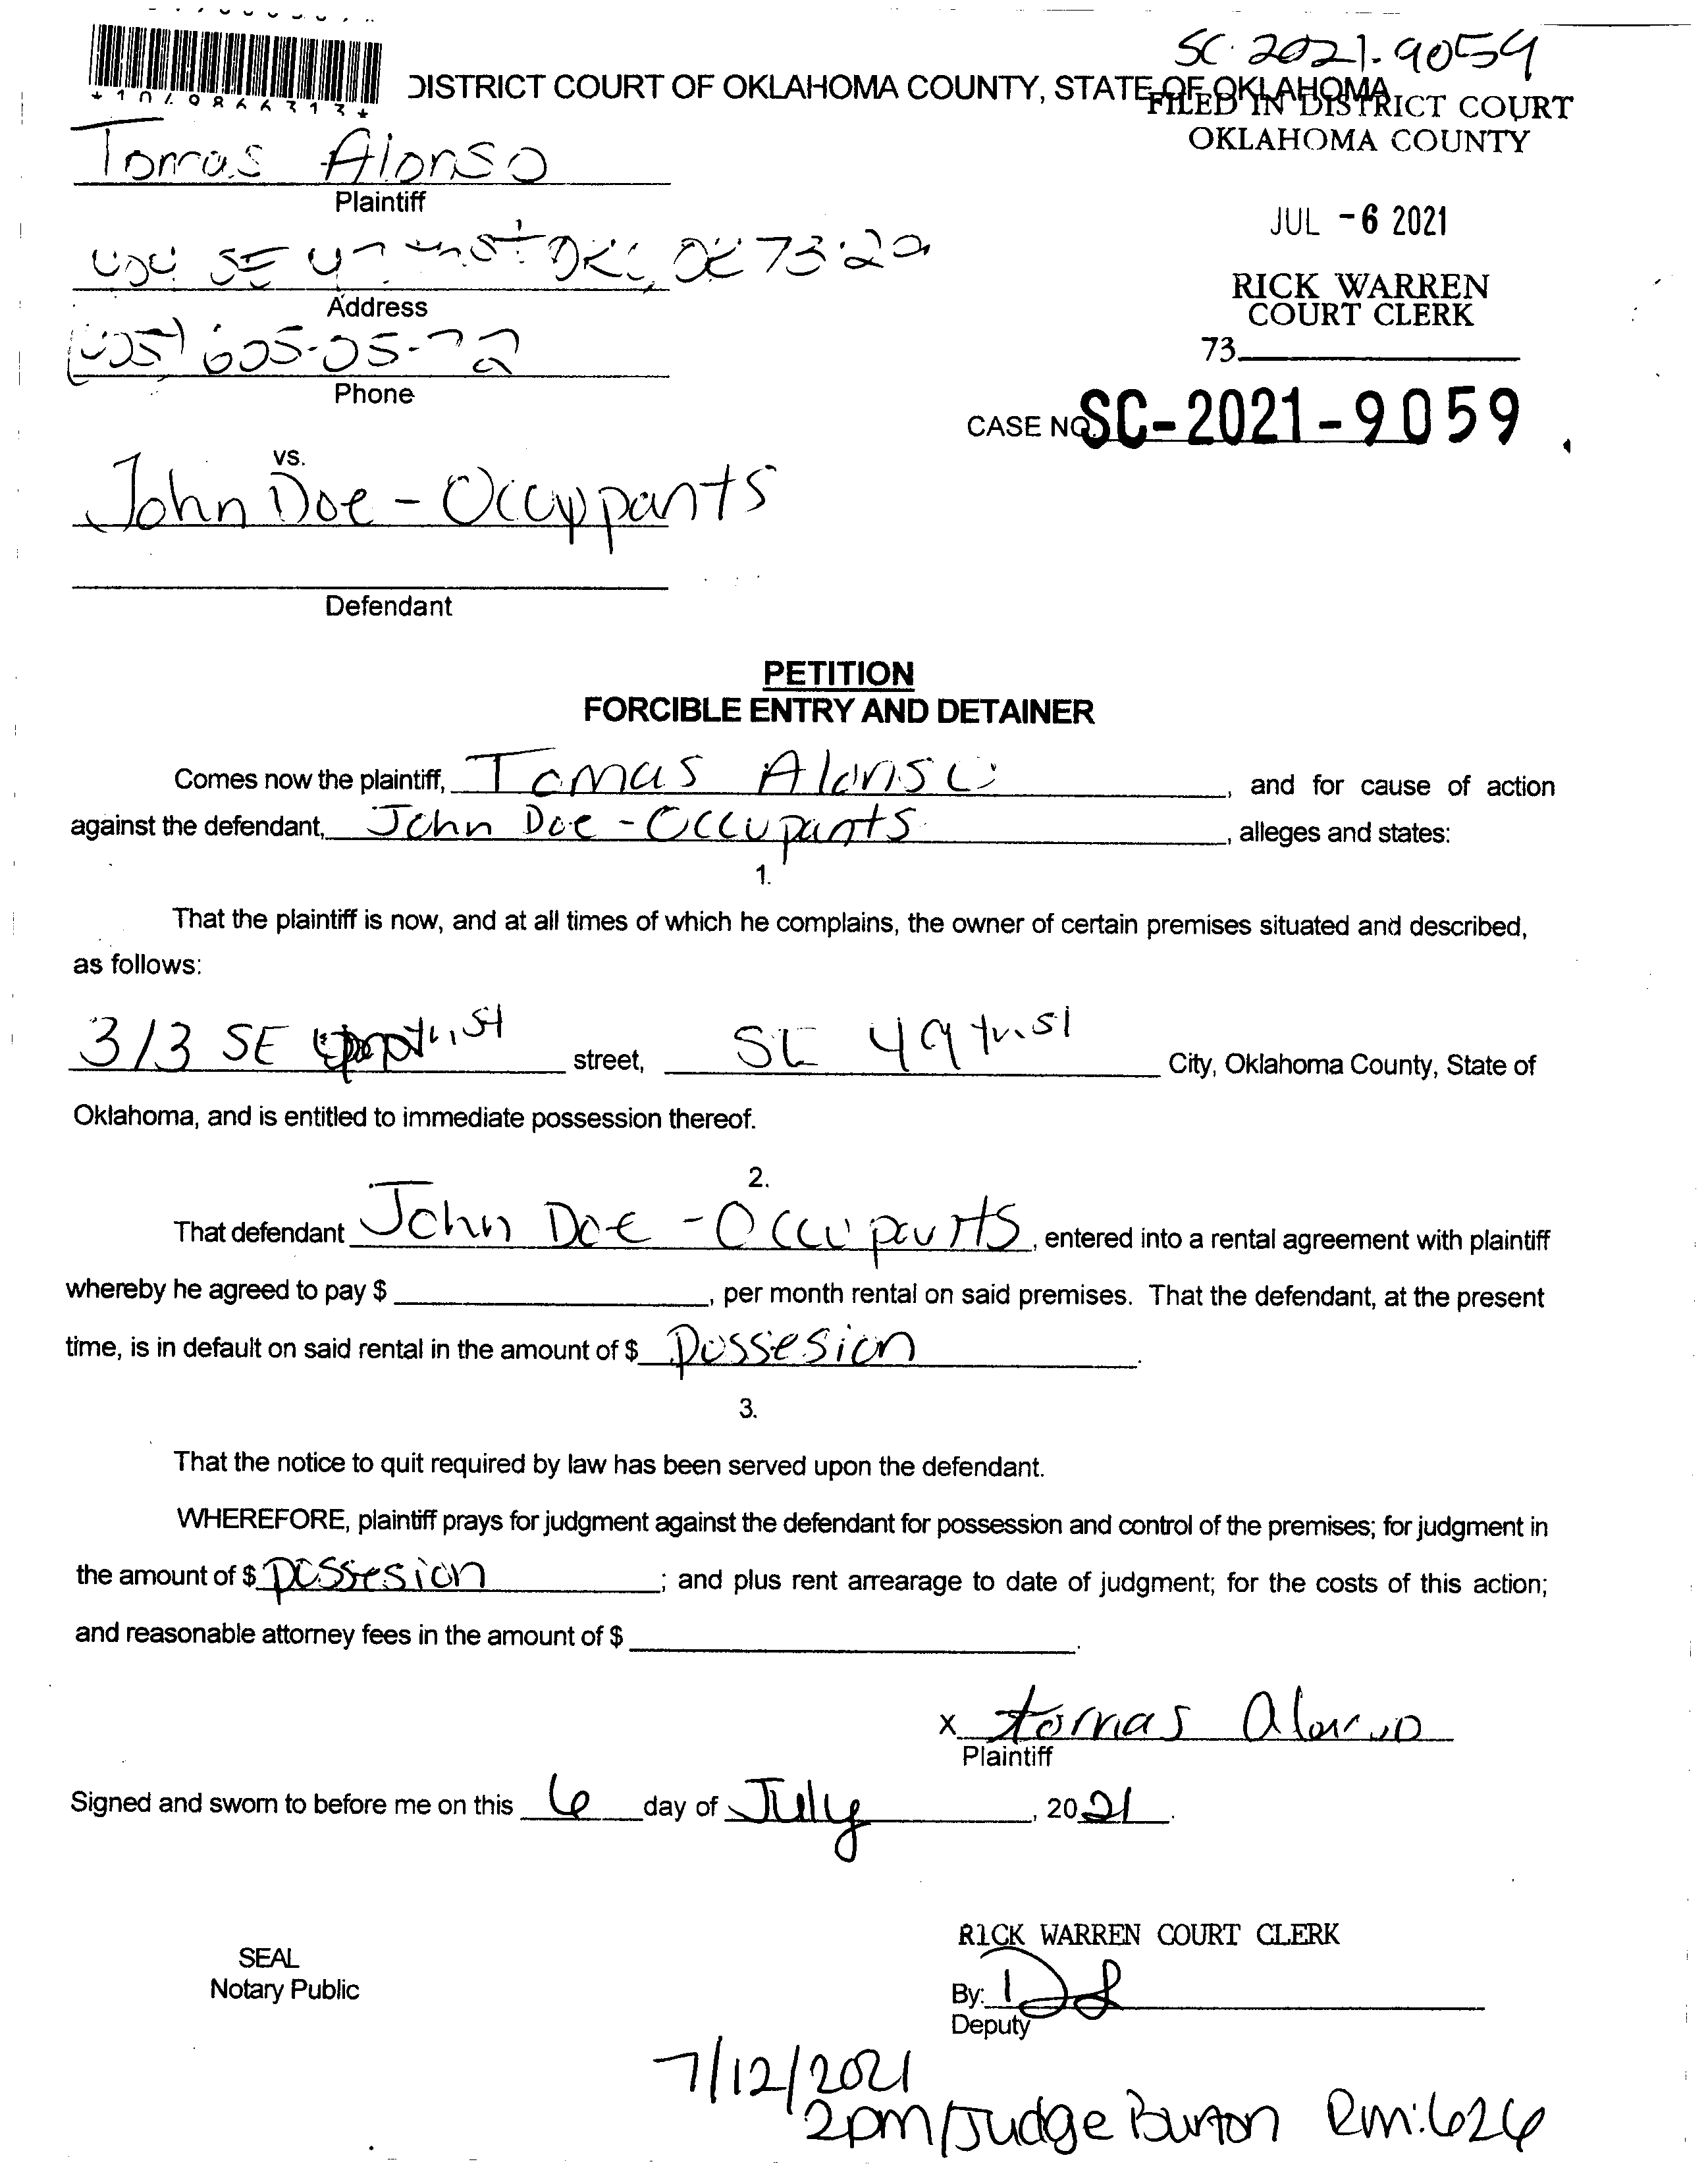 SC-2021-9059
DISTRICT COURT OF OKLAHOMA COUNTY, STATE OF OKLAHOMA
FILED IN DISTRICT COURT
OKLAHOMA COUNTY
Tomas Alonso
Plaintiff
JUL -6 2021
SE OK
Address
RICK WARREN
COURT CLERK
73
Phone
CASE NO. SC-2021-9059
vs.
John Doe - Occuppants
Defendant
PETITION
FORCIBLE ENTRY AND DETAINER
Comes now the plaintiff, Tomas Alonso, and for cause of action
against the defendant, John Doe - Occupants, alleges and states:
1.
That the plaintiff is now, and at all times of which he complains, the owner of certain premises situated and described,
as follows:
313 SE st street, SE 49th st City, Oklahoma County, State of
Oklahoma, and is entitled to immediate possession thereof.
2.
That defendant John Doe - Occupants, entered into a rental agreement with plaintiff
whereby he agreed to pay $ , per month rental on said premises. That the defendant, at the present
time, is in default on said rental in the amount of $ Possesion.
3.
That the notice to quit required by law has been served upon the defendant.
WHEREFORE, plaintiff prays for judgment against the defendant for possession and control of the premises; for judgment in
the amount of $ possesion; and plus rent arrearage to date of judgment; for the costs of this action;
and reasonable attorney fees in the amount of $ .
x tomas alonso
Plaintiff
Signed and sworn to before me on this 6 day of July, 2021.
RICK WARREN COURT CLERK
SEAL
Notary Public
By:
Deputy
7/12/2021
2pm/Judge Burton Rm:626